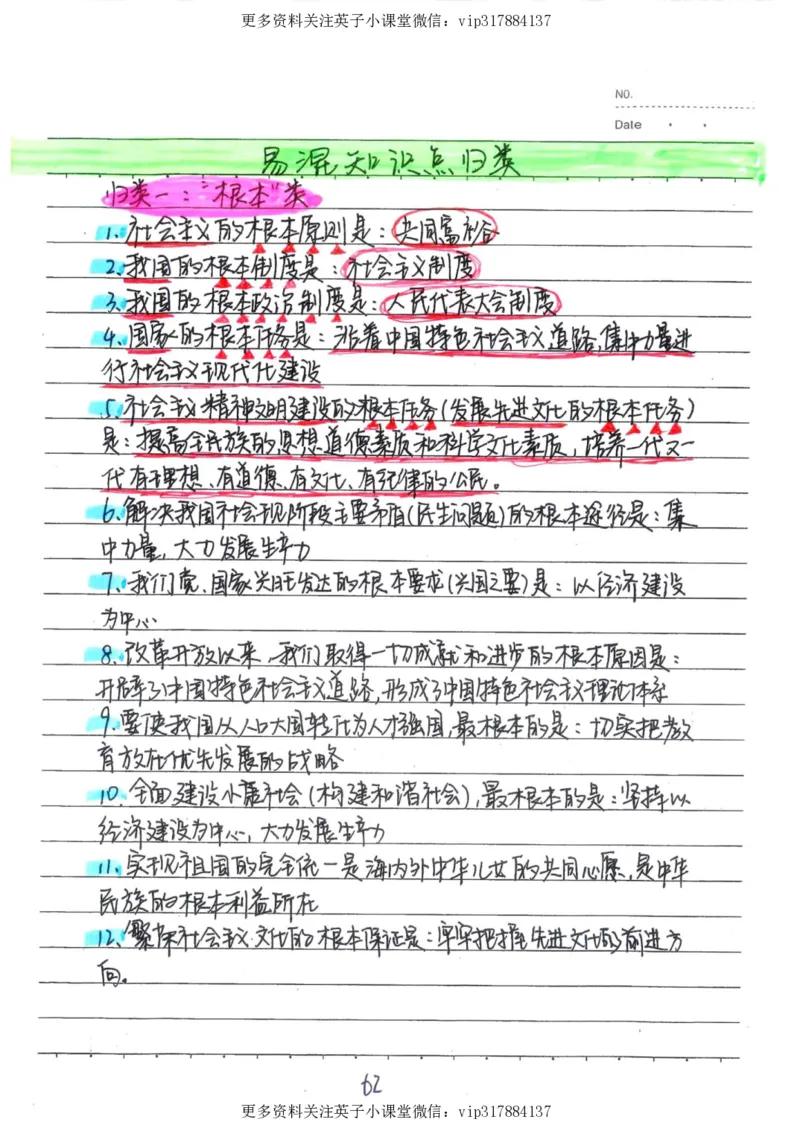 更多资料关注英子小课堂微信：vip317884137
NO.
Date
易混知识点归类
归类一："根本"类
1、社会主义的根本原则是：共同富裕
2、我国的根本制度是：社会主义制度
3、我国的根本政治制度是：人民代表大会制度
4、国家的根本任务是：沿着中国特色社会主义道路，集中力量进
行社会主义现代化建设
5、社会主义精神文明建设的根本任务（发展先进文化的根本任务）
是：提高全民族的思想道德素质和科学文化素质，培养一代又一
代有理想、有道德、有文化、有纪律的公民。
6、解决我国社会现阶段主要矛盾（民生问题）的根本途径是：集
中力量，大力发展生产力
7、我们党、国家兴旺发达的根本要求（兴国之要）是：以经济建设
为中心
8、改革开放以来，我们取得一切成就和进步的根本原因是：
开辟了中国特色社会主义道路，形成了中国特色社会主义理论体系
9、要使我国从人口大国转化为人才强国，最根本的是：切实把教
育放在优先发展的战略
10、全面建设小康社会（构建和谐社会），最根本的是：坚持以
经济建设为中心，大力发展生产力
11、实现祖国的完全统一是海内外中华儿女的共同心愿，是中华
民族的根本利益所在
12、繁荣社会主义文化的根本保证是：牢牢把握先进文化的前进方
向。
62
更多资料关注英子小课堂微信：vip317884137